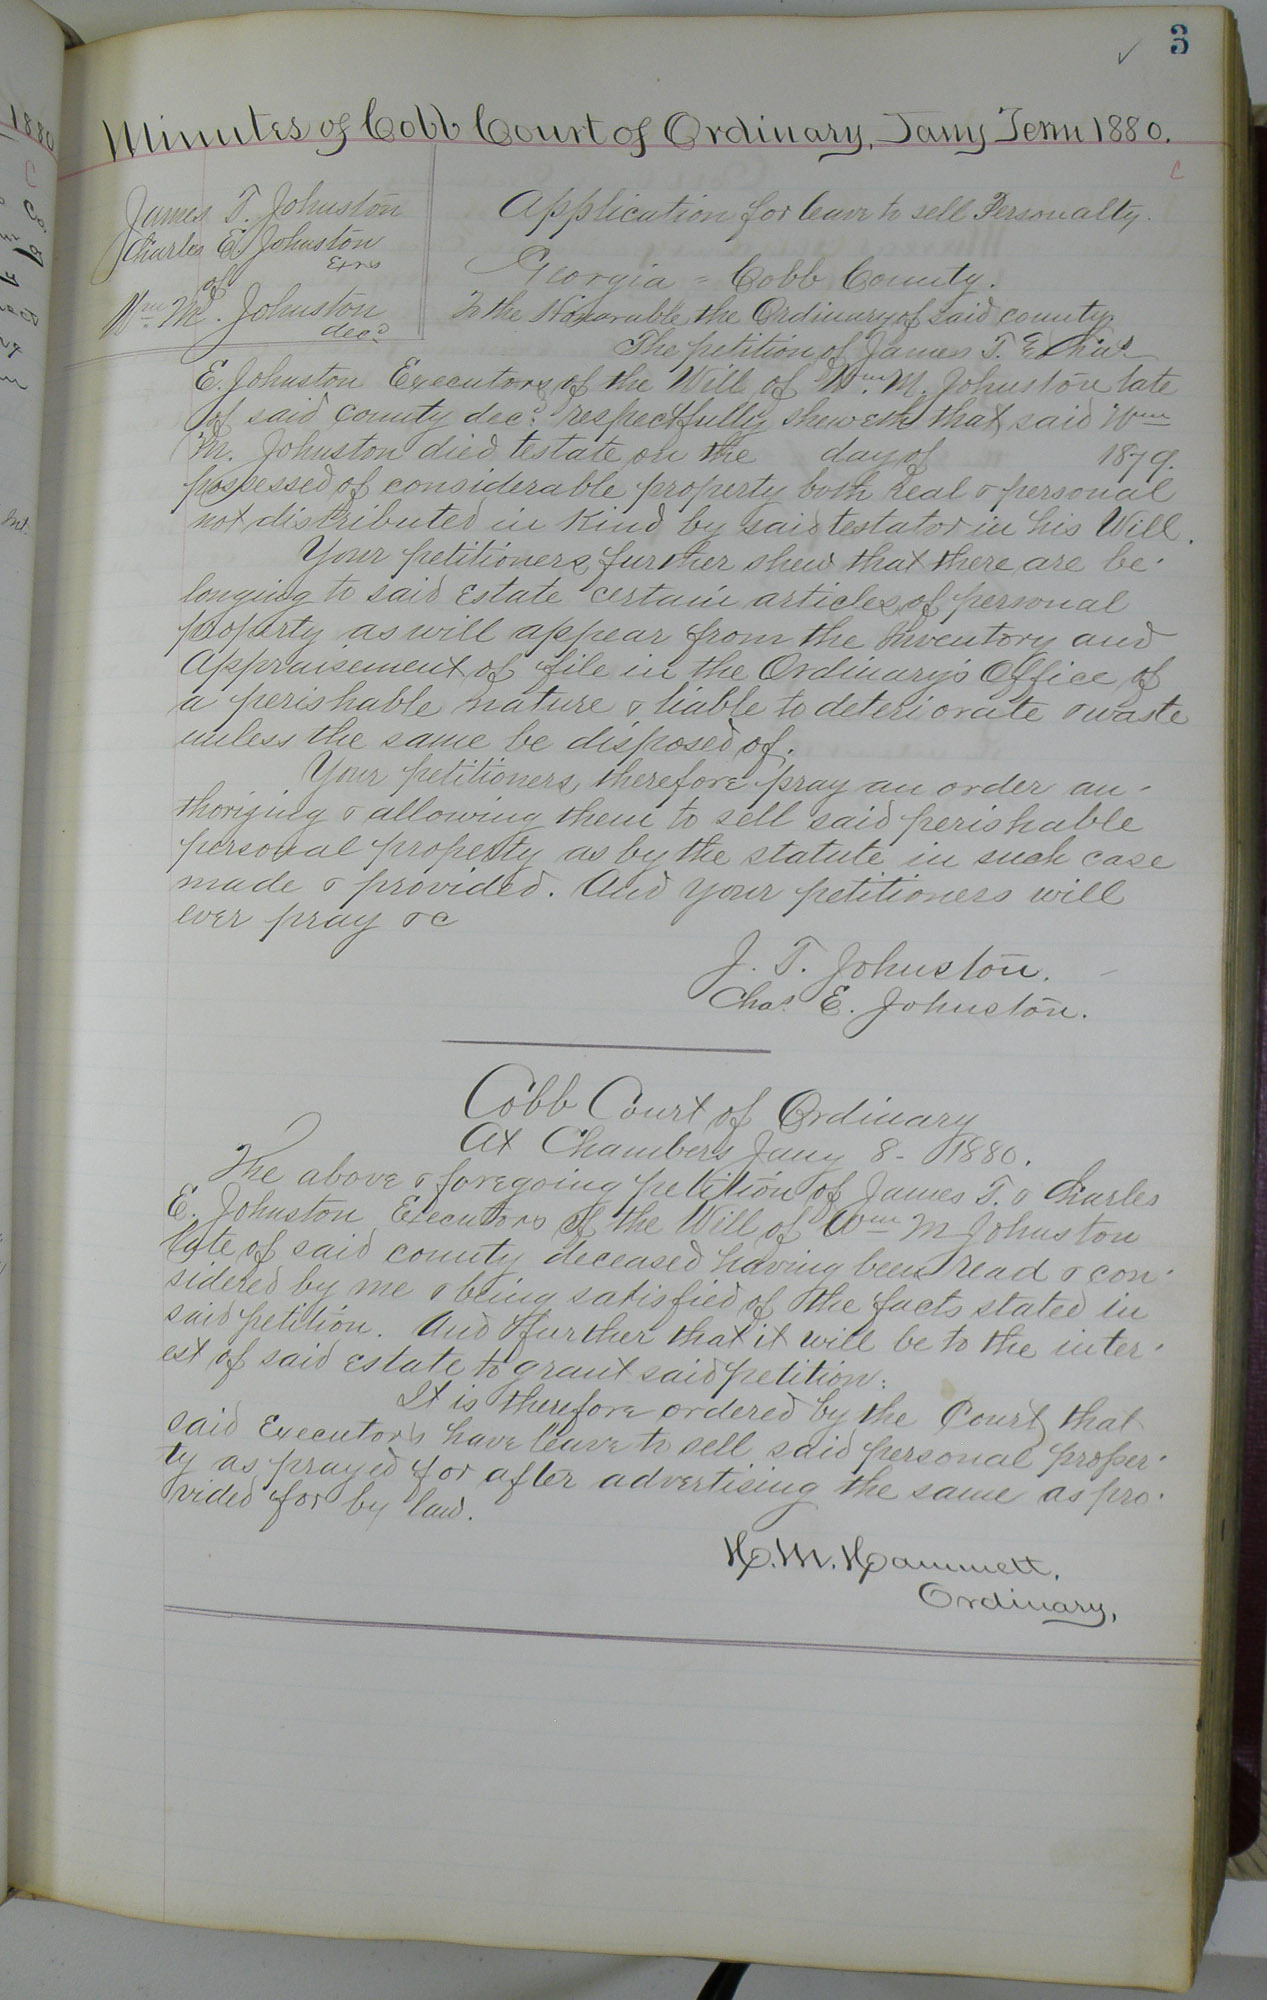 3
Minutes of Cobb Court of Ordinary, Jany Term 1880.
James T. Johnston
Charles E. Johnston
Exrs
of
Wm. M. Johnston
decd
Application for leave to sell Personalty.
Georgia = Cobb County.
To the Honorable the Ordinary of said county
The petition of James T. & Chas
E. Johnston Executors of the Will of Wm. M. Johnston late
of said county decd. respectfully sheweth that said Wm
M. Johnston died testate on the day of 1879.
possessed of considerable property both real & personal
not distributed in kind by said testator in his Will.
Your petitioners further shew that there are be-
longing to said Estate certain articles of personal
property as will appear from the Inventory and
Appraisement of file in the Ordinary's Office of
a perishable nature & liable to deteriorate & waste
unless the same be disposed of.
Your petitioners, therefore pray an order au-
thorizing & allowing them to sell said perishable
personal property as by the statute in such case
made & provided. And your petitioners will
ever pray &c
J. T. Johnston.
Chas. E. Johnston.
Cobb Court of Ordinary
At Chambers Jany 8- 1880.
The above & foregoing petition of James T. & Charles
E. Johnston Executors of the Will of Wm M Johnston
late of said county deceased having been read & con-
sidered by me & being satisfied of the facts stated in
said petition. And further that it will be to the inter-
est of said estate to grant said petition:
It is therefore ordered by the Court that
said Executors have leave to sell said personal proper-
ty as prayed for after advertising the same as pro-
vided for by law.
H. M. Hammett,
Ordinary,